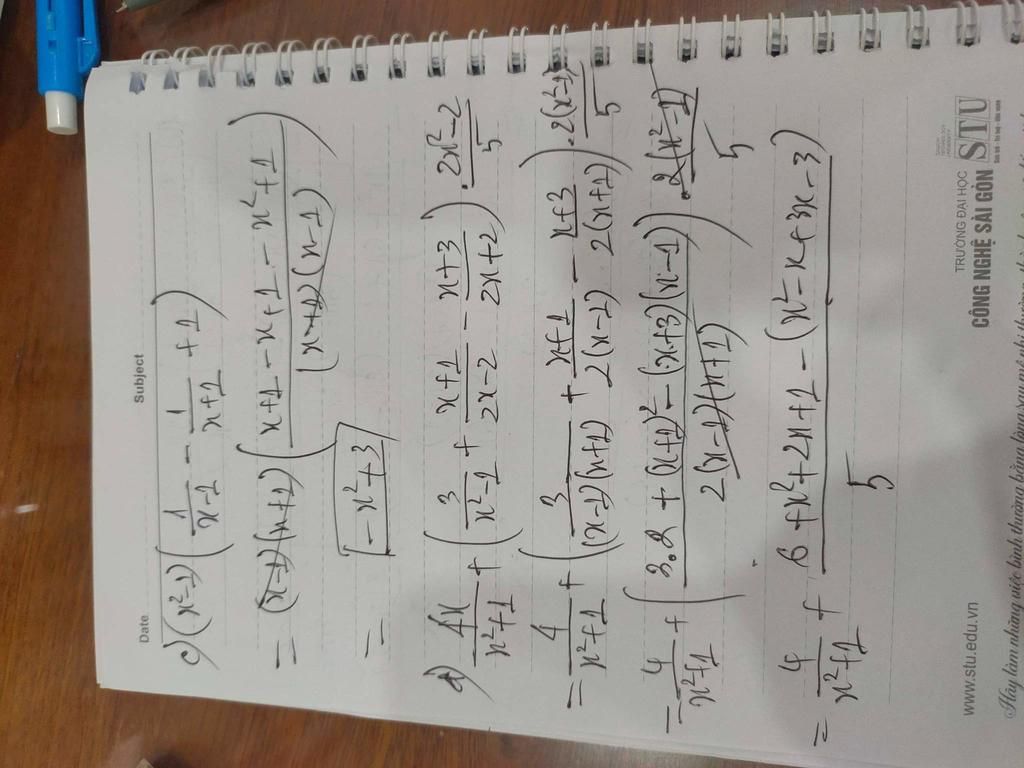 Date
Subject
c) (x²-1)(1/(x-1) - 1/(x+1) + 1)
= (x-1)(x+1)((x+1-x+1-x²+1)/((x+1)(x-1)))
= -x²+3
d) 4x/(x²+1) + (3/(x²-1) + (x+1)/(2x-2) - (x+3)/(2x+2)) . (2x²-2)/5
= 4/(x²+1) + (3/((x-1)(x+1)) + (x+1)/(2(x-1)) - (x+3)/(2(x+1))) . 2(x²-1)/5
= 4/(x²+1) + ((3.2 + (x+1)² - (x+3)(x-1))/(2(x-1)(x+1))) . 2(x²-1)/5
= 4/(x²+1) + (6+x²+2x+1-(x²-x+3x-3))/5
www.stu.edu.vn
TRƯỜNG ĐẠI HỌC
CÔNG NGHỆ SÀI GÒN
STU
Hãy làm những việc bình thường bằng lòng say mê phi thường